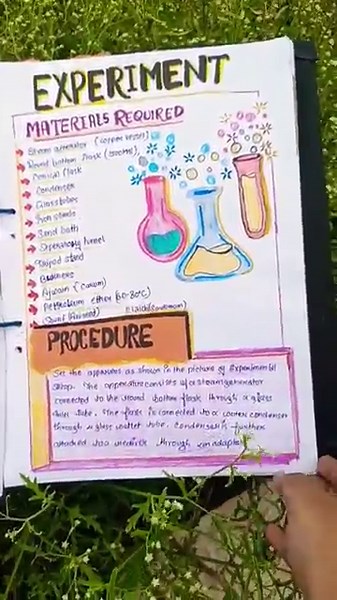 EXPERIMENT
MATERIALS REQUIRED
Steam generator (copper vessel)
Round bottom flask (500ml),
Conical flask
Condenser
Glass tubes
Iron stands
Sand bath
Separatory funnel
Tripod stand
Burners
Ajwain (Carum)
Petroleum ether (60-80°C)
Saunf (Aniseed) Elaichi (cardamom)
PROCEDURE
Set the apparatus as shown in the picture of Experimental
Setup. The apparatus consists of a steam generator
connected to the round bottom flask through a glass
inlet tube. The flask is connected to a water condenser
through a glass outlet tube. Condenser is further
attached to a through an adapter